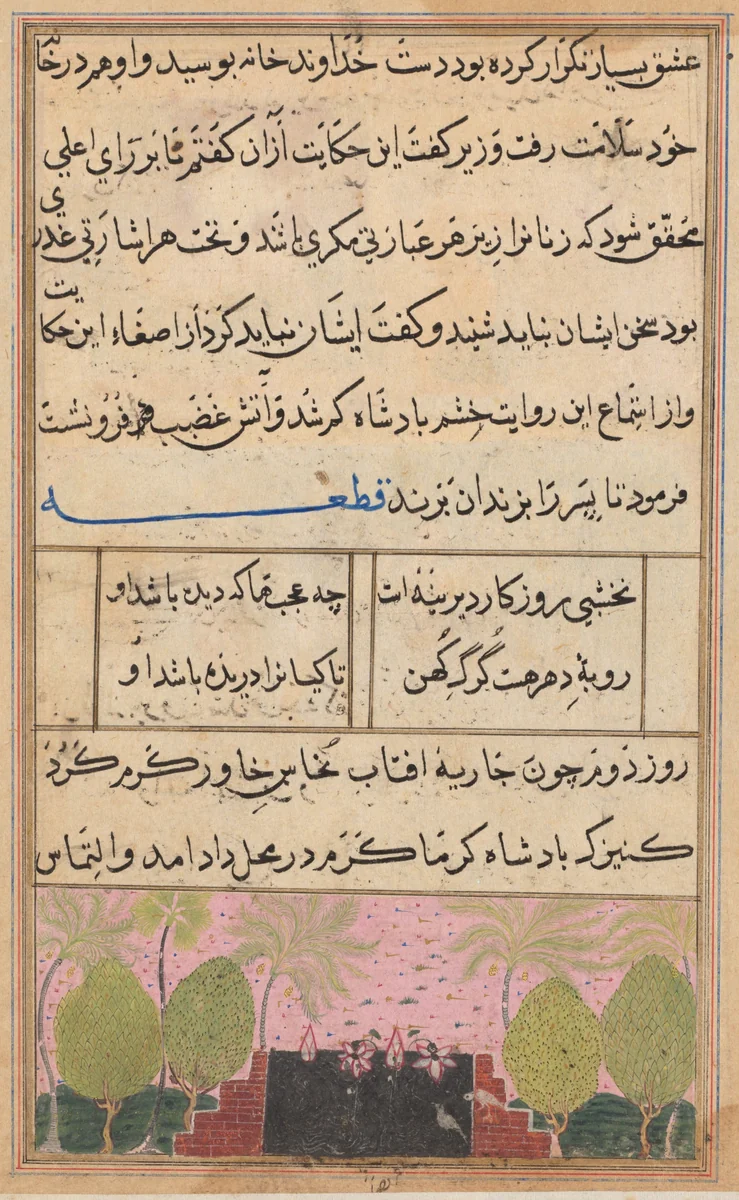 عشق بسیار تکرار کرده بود دست خداوند خانه بوسید و او هم در خانه
خود سلامت رفت وزیر کفت این حکایت از آن کفتم تا بر رای اعلی
محقق شود که زنانرا زیر هر عبارتی مکری باشد و تحت هر اشارتی غدری
بود سخن ایشان نباید شنید و کفت ایشان نباید کرد از اصغاء این حکایت
و از استماع این روایت خشم بادشاه کم شد و آتش غضب فرونشست
فرمود تا پسر را بزندان بزند قطعه
نخشبی روزکار دیرینه است
چه عجبها که دیده باشد او
روبهٔ دهر هست گرگ کهن
تا کیانرا دریده باشد او
روز دوم چون جاریهٔ افتاب نخاس خاور کرم کرد
کنیزک بادشاه کرما کرم در محل داد امد و التماس